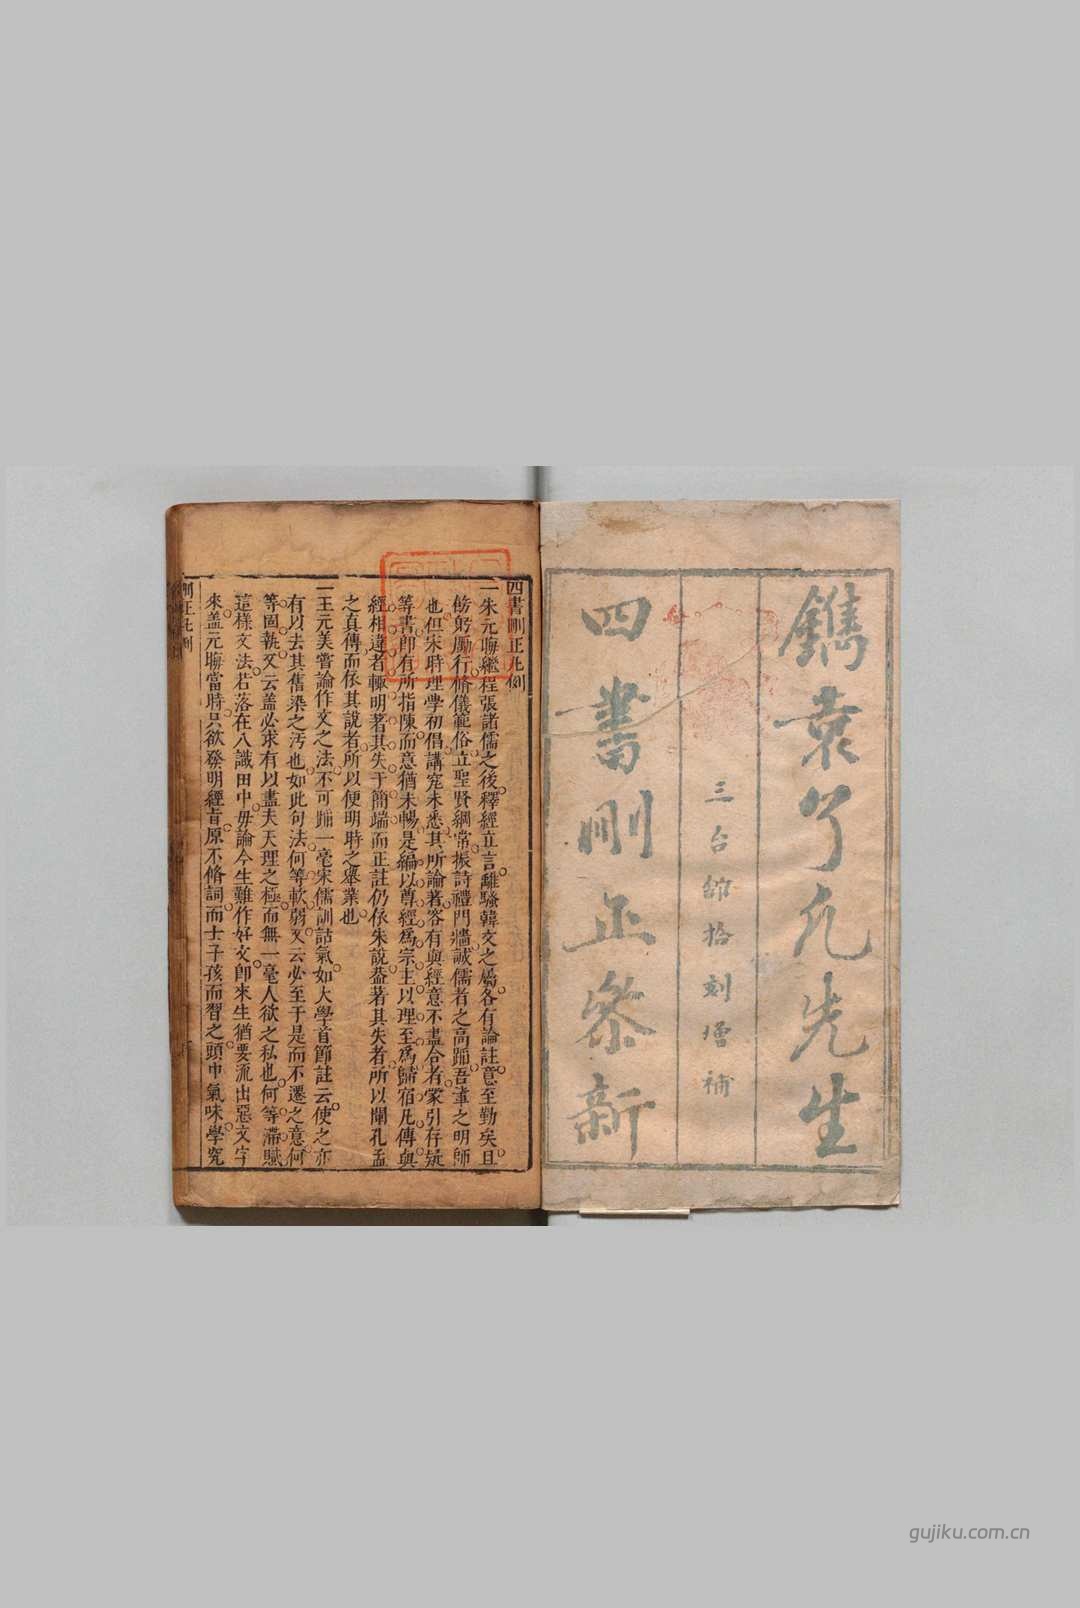 鐫袁了凡先生
三台館梓刻增補
四書刪正叅新
四書刪正凡例
一朱元晦繼程張諸儒之後釋經立言離騷韓文之屬各有論註意至勤矣且
飭躬勵行脩儀範俗立聖賢綱常振詩禮門牆誠儒者之高蹈吾軰之明師
也但宋時理學初倡講究未悉其所論著容有與經意不盡合者蒙引存疑
等書卽有所指陳而意猶未暢是編以尊經為宗主以理至為歸宿凡傳與
經相違者輙明著其失于簡端而正註仍依朱說葢著其失者所以闡孔孟
之真傳而依其說者所以便明時之舉業也
一王元美嘗論作文之法不可蹈一毫宋儒訓詁氣如大學首節註云使之亦
有以去其舊染之汚也如此句法何等軟弱又云必至于是而不遷之意何
等固執又云蓋必求有以盡夫天理之極而無一毫人欲之私也何等滯贜
這樣文法若落在八識田中毋論今生難作好文卽來生猶要流出惡文字
來盖元晦當時只欲發明經旨原不脩詞而士子孩而習之頭巾氣味學究
刪正凡例
gujiku.com.cn